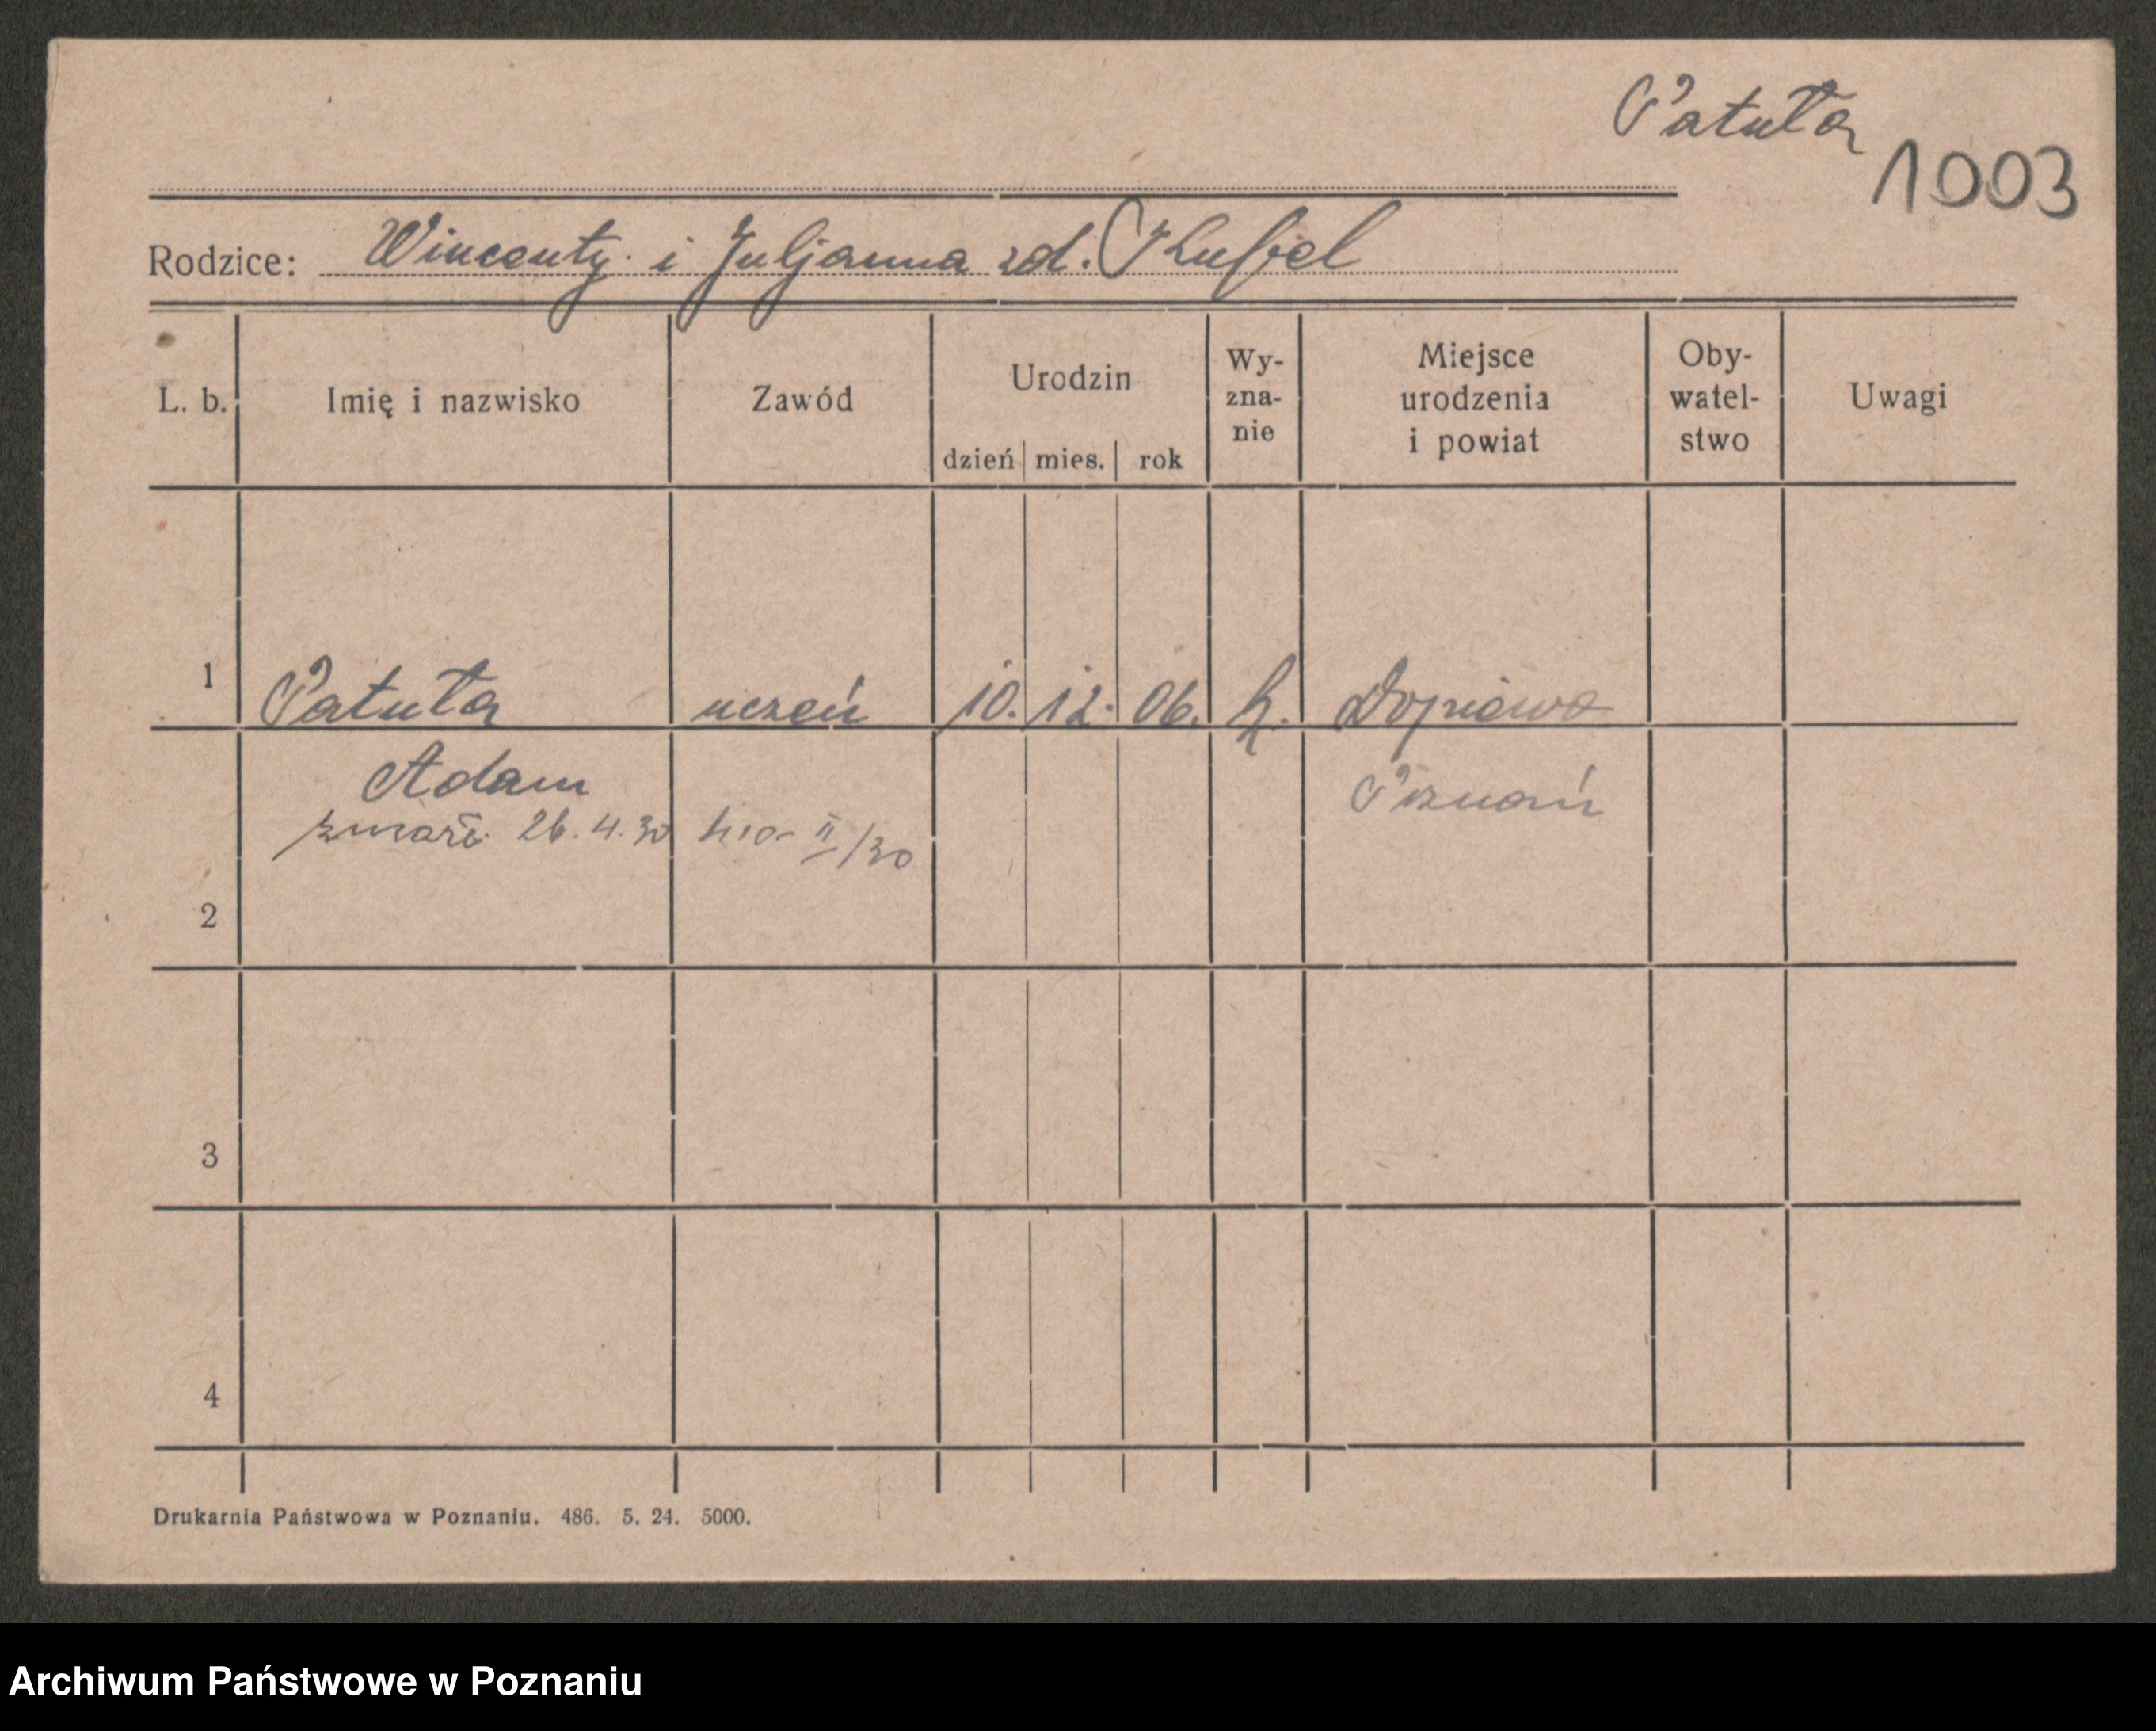 Patuła
1003
Rodzice: Wincenty i Juljanna zd. Kufel
L. b. Imię i nazwisko Zawód Urodzin dzień mies. rok Wy-zna-nie Miejsce urodzenia i powiat Oby-watel-stwo Uwagi
1 Patuła uczeń 10. 12. 06. k. Dopiewo
Adam Poznań
zmarł 26.4.30 II/30
2
3
4
Drukarnia Państwowa w Poznaniu. 486. 5. 24. 5000.
Archiwum Państwowe w Poznaniu